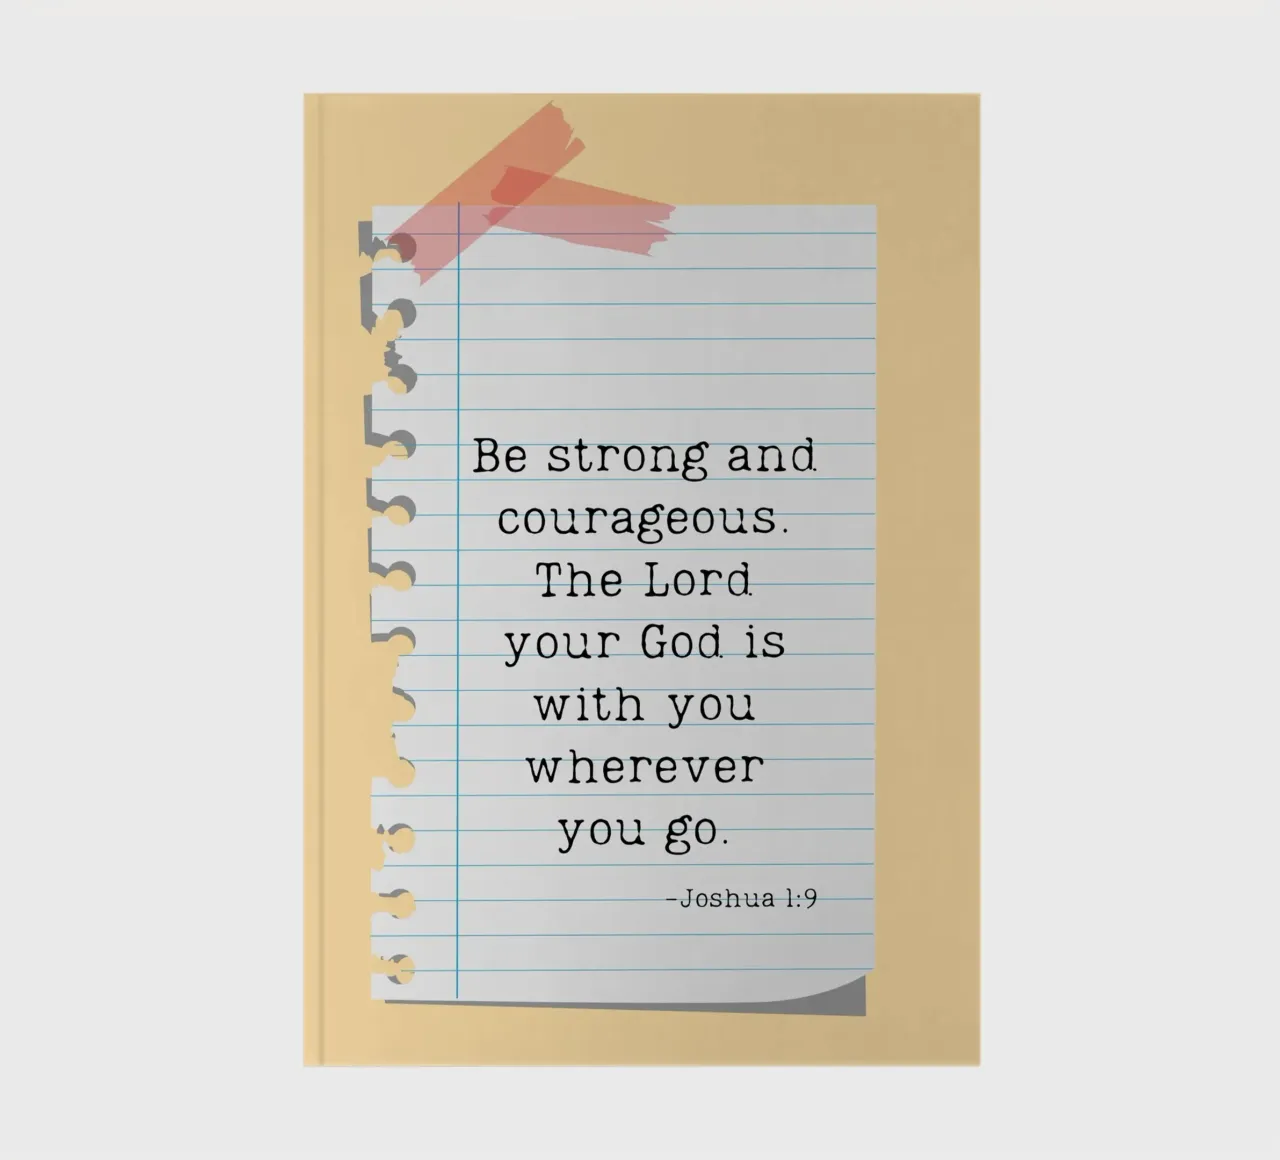 Be strong and
courageous.
The Lord
your God is
with you
wherever
you go.
-Joshua 1:9